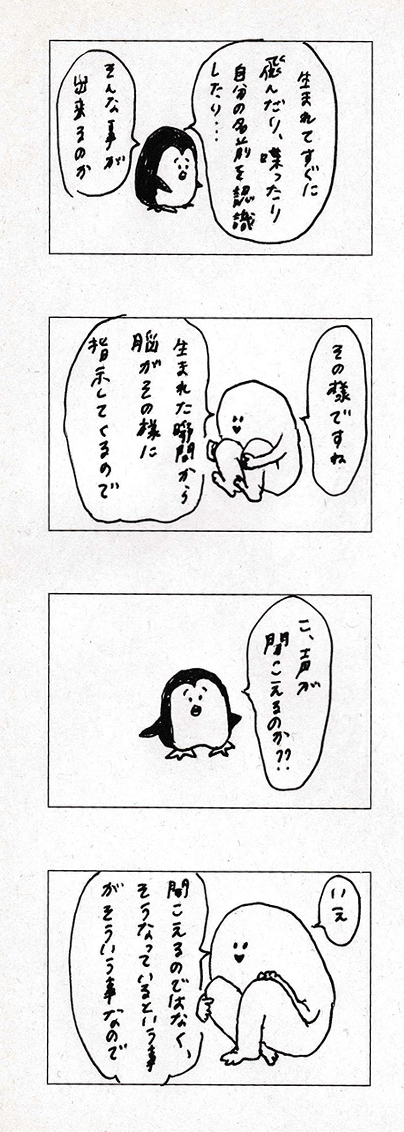 生まれてすぐに
飛んだり、喋ったり
自分の名前を認識
したり…
そんな事が
出来るのか
その様ですね
生まれた瞬間から
脳がその様に
指示してくるので
こ、声が
聞こえるのか??
いえ
聞こえるのではなく、
そうなっているという事
がそういう事なので